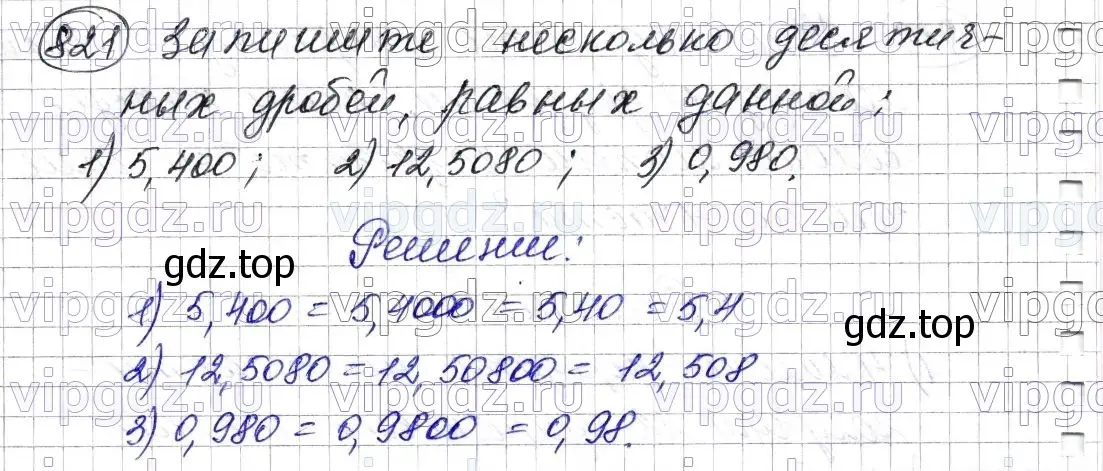 821 Запишите несколько десятич-
ных дробей, равных данной:
1) 5,400; 2) 12,5080; 3) 0,980.
Решении:
gdz.top
1) 5,400 = 5,4000 = 5,40 = 5,4
gdz.top
2) 12,5080 = 12,50800 = 12,508
3) 0,980 = 0,9800 = 0,98.
vipgdz.ru